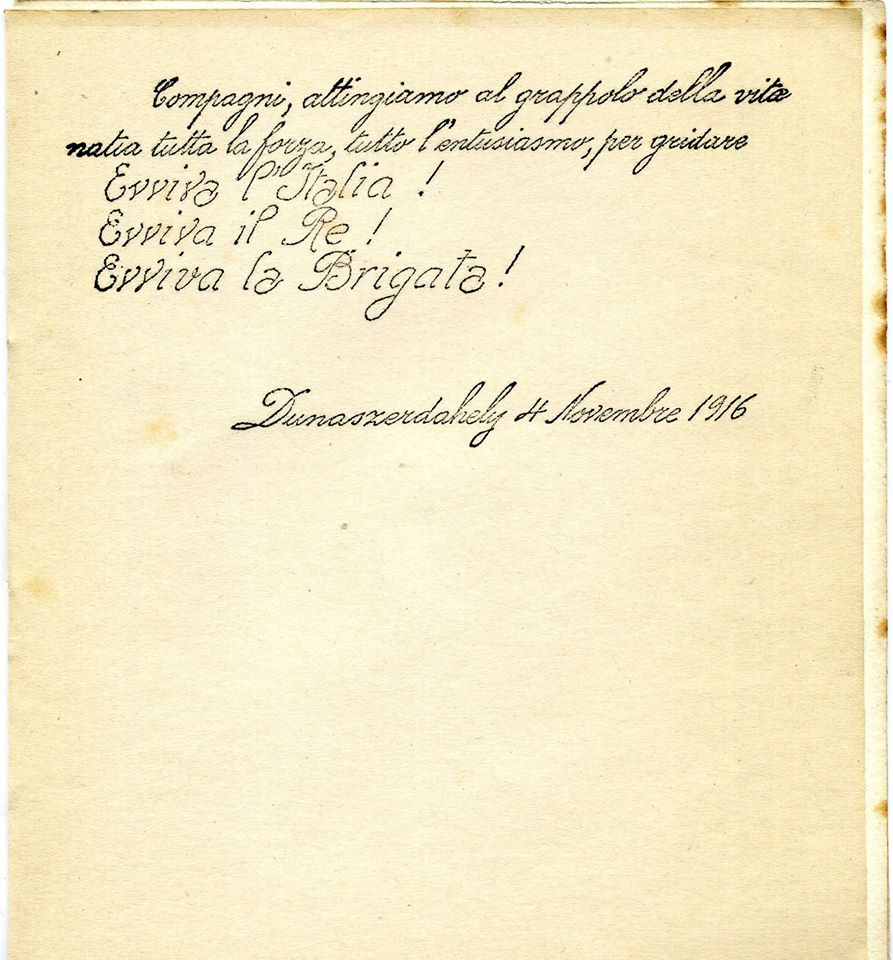 Compagni, attingiamo al grappolo della vita
natia tutta la forza, tutto l'entusiasmo, per gridare
Evviva l'Italia !
Evviva il Re !
Evviva la Brigata !
Dunaszerdahely 4 Novembre 1916